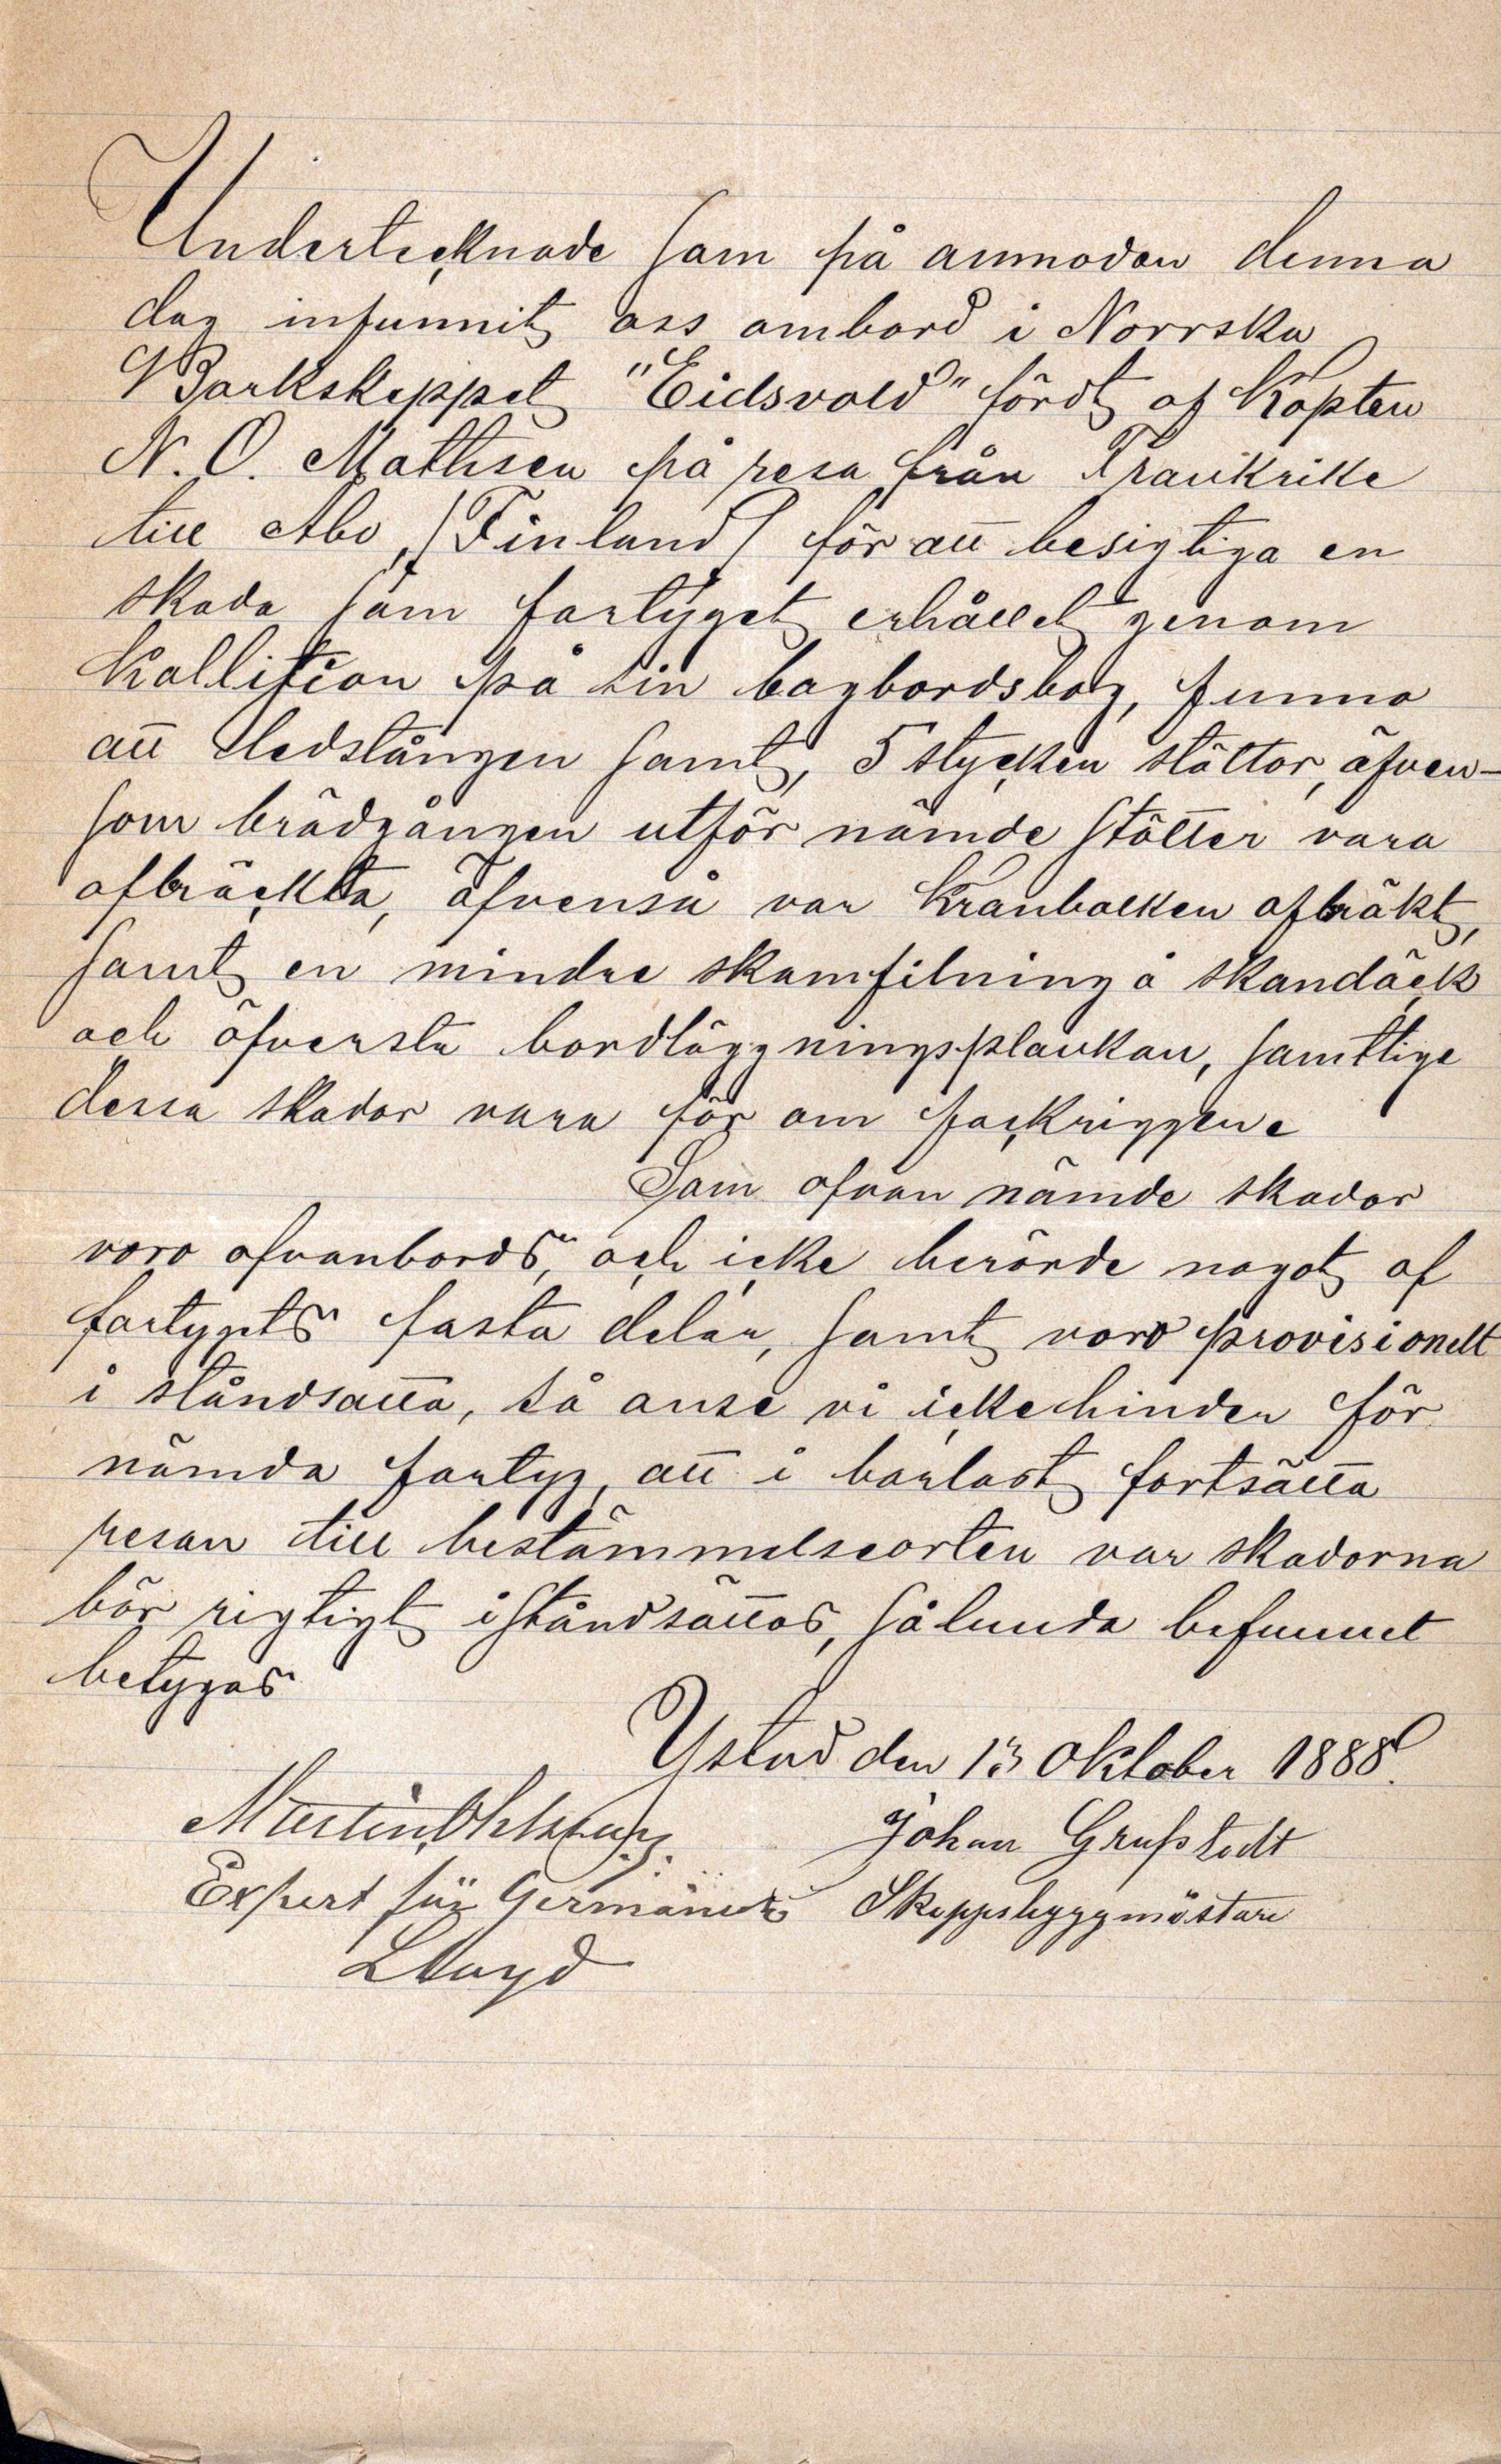 Undertecknade som på anmodan denna
dag infunnit oss ombord i Norrska
Barkskeppet "Eidsvold" fördt af Kapten
N. O. Mathsen på resa från Frankrike
till Abo, (Finland) för att besigtiga en
skada som fartyget erhållet genom
Kollition på sin bagbordsbog, funno
att Ledstången samt, 5 stycken stöttor, äfven-
som brädgången utför nämde stötter vara
afbräckta, äfvenså var Kranbalken afbräkt,
samt en mindre skamfilning å skandäck
och öfversta bordläggningsplankan, samtlige
dessa skador vara för om fockriggen.
Som ofvan nämde skador
voro ofvanbords, och icke berörde nogot af
fartygets fasta delar, samt voro provisionelt
i ståndsatta, så anse vi icke hinder för
nämda fartyg, att i barlast fortsätta
resan till bestämmelseorten var skadorna
bör rigtigt iståndsättas, sålunda befunnet
betygas
Ystad den 13 Oktober 1888.
Martin
Johan Grufstedt
Expert für Germanischer Skeppsbyggmästare
Lloyd